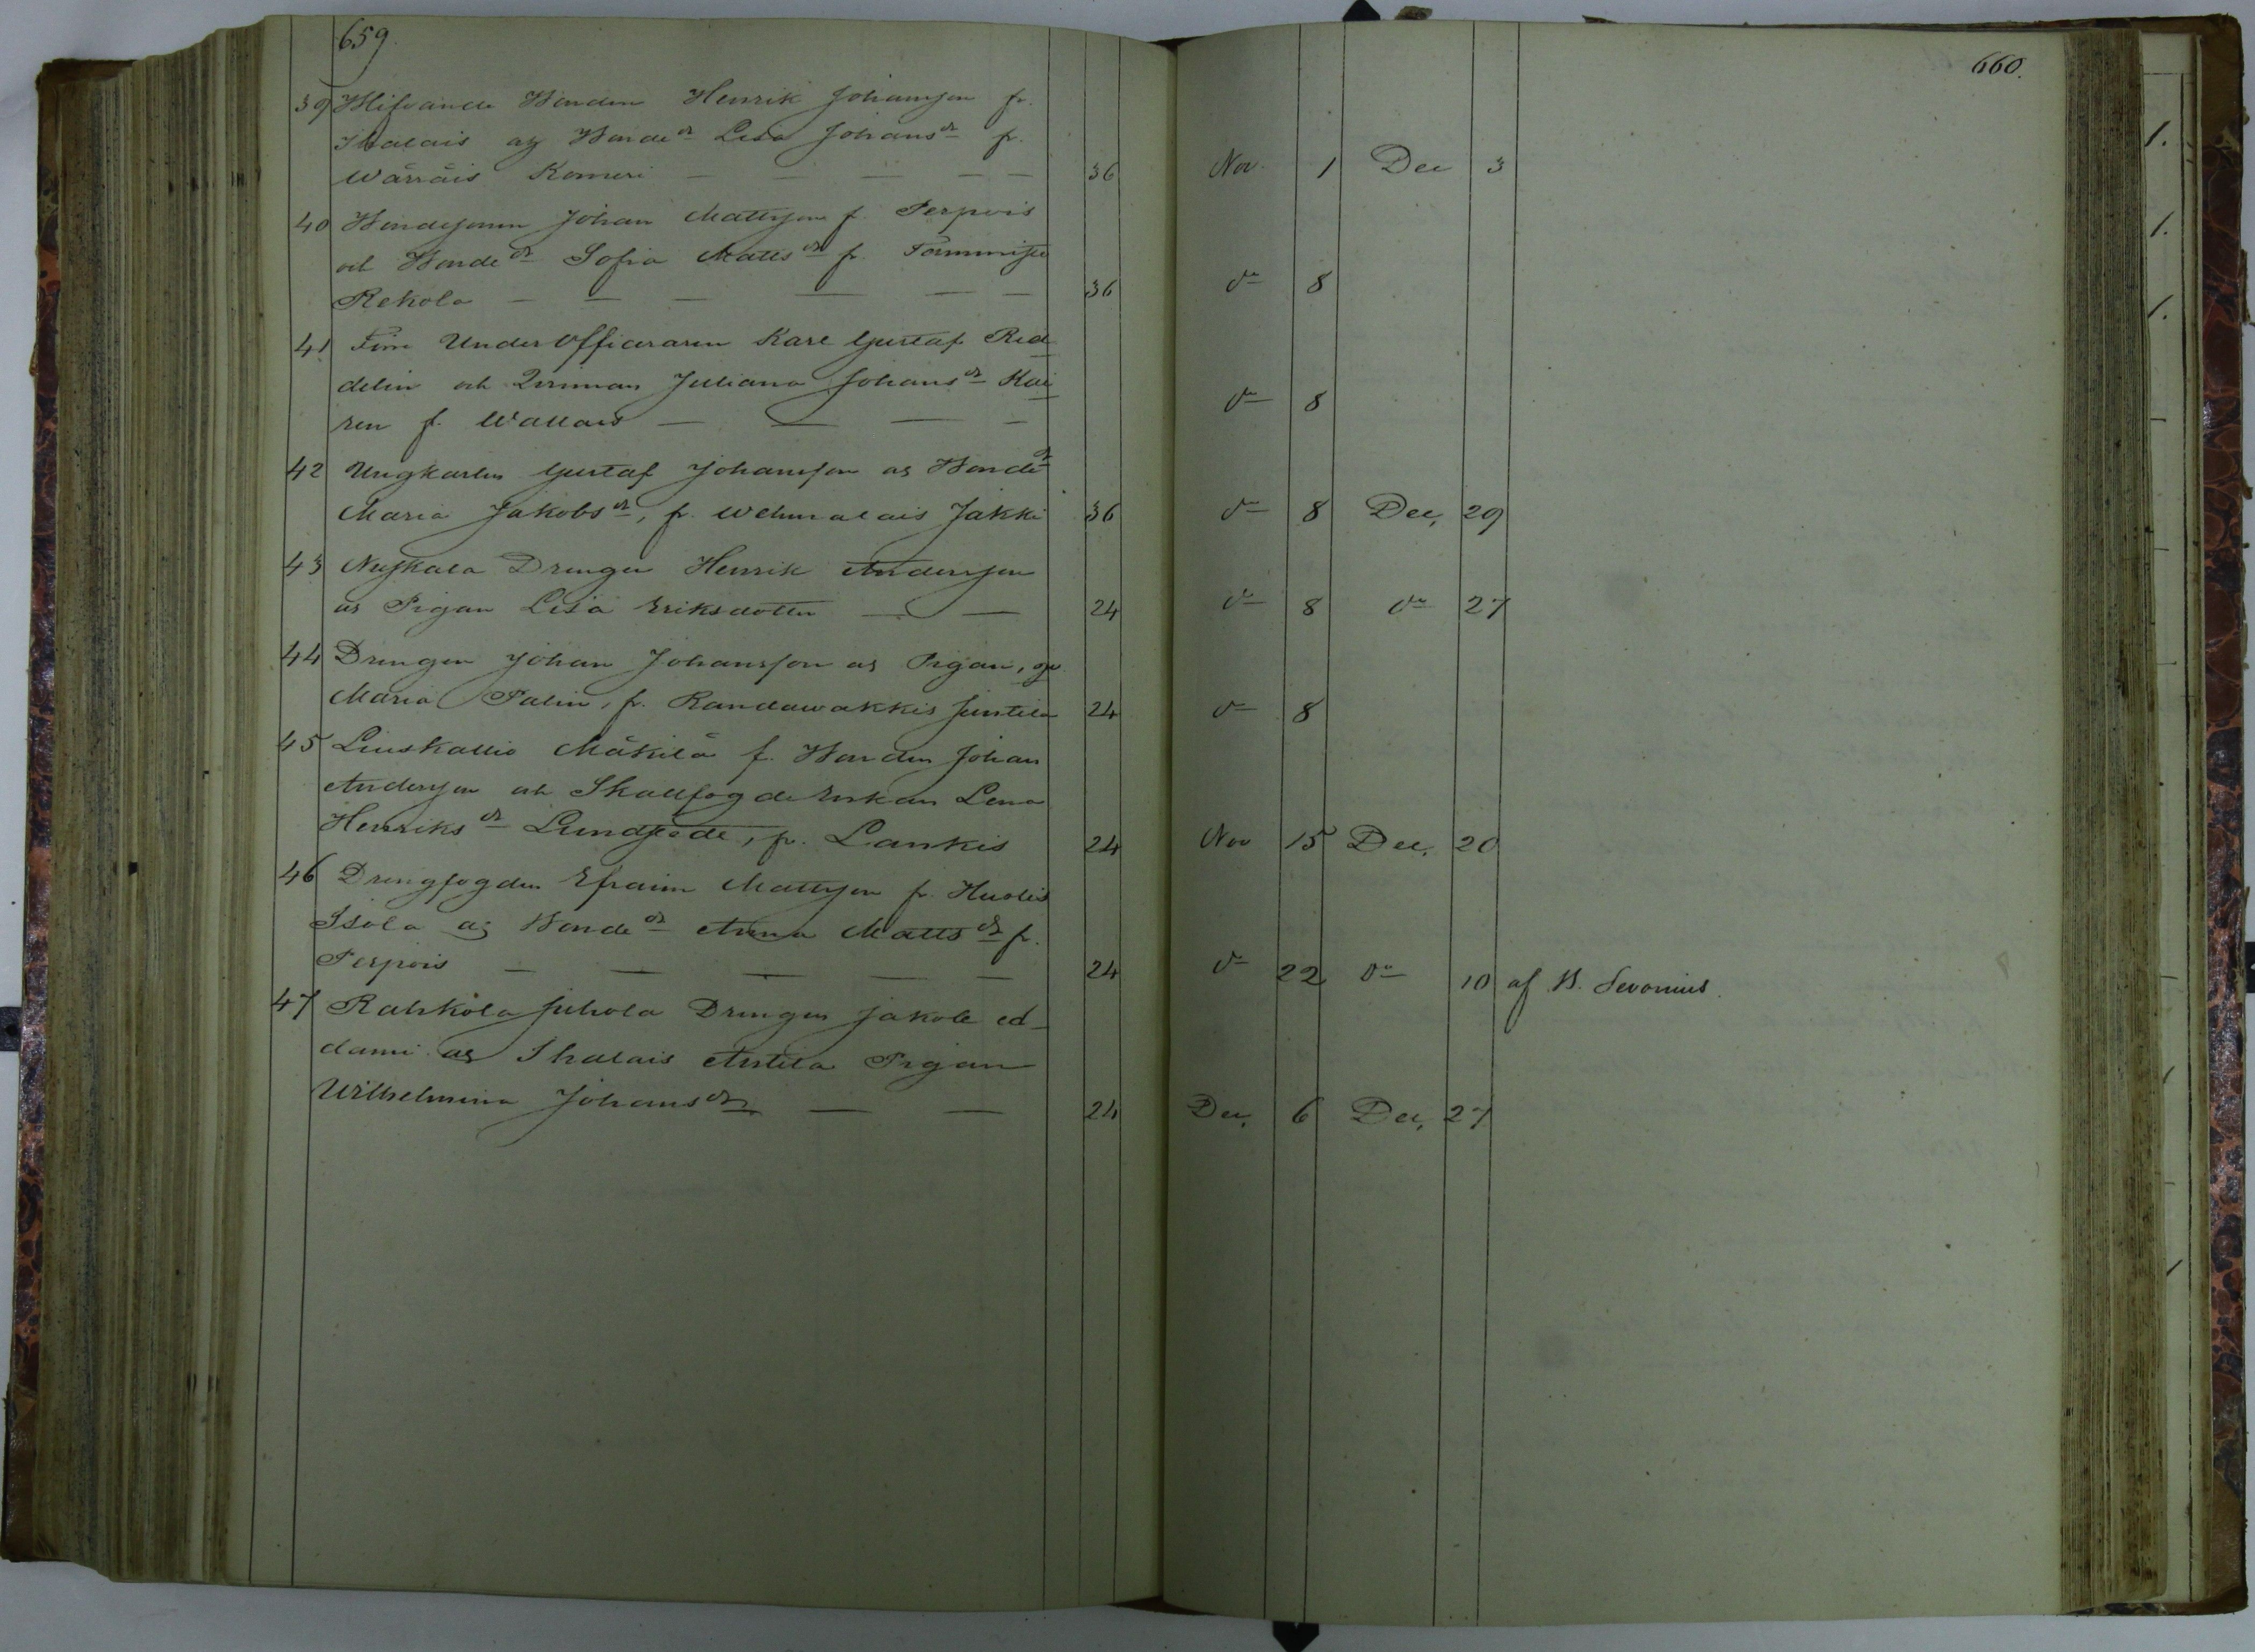 659.
660.
39 Blifvande Bonden Henrik Johansson fr.
Ihalais ag Bonde dr Lisa Johans dr fr.
Wärräis Komeri — — — — — 36 Nov. 1 Dec 3
40 Bondesonen Johan Mattsson f. Perpois
och Bonde dr Sofia Matts dr fr. Tammisto
Rekola — — — — — — 36 do 8
41 Förre UnderOfficeraren Karl Gustaf Red
delin och Qvinnan Juliana Johans dr Kai
ren f. Wallais — — — — do 8
42 Ungkarlen Gustaf Johansson ag Bonde dr
Maria Jakobs dr, fr. Wehmalais Jakki 36 do 8 Dec, 29
43 Nuskala Drengen Henrik Andersson
ag Pigan Lisa Eriksdotter — — 24 do 8 do 27
44 Drengen Johan Johansson ag Pigan,
Maria Palin, fr. Randawakkis Juntila 24 do 8
45 Liuskallio Mäkilä f. Bonden Johan
Andersson och Skallfogde Enkan Lena
Henriks dr Lundstede, fr. Lankis 24 Nov 15 Dec, 20
46 Drengfogden Efraim Mattsson fr. Huolis
Isola ag Bonde dr Anna Matts dr fr.
Perpois — — — — — 24 do 22 do 10 af B. Sevonius.
47 Rahkola Juhola Drengen Jakob ed
dami ag Ihalais Antila Pigan
Wilhelmina Johans dr — — 24 Dec, 6 Dec, 27
1.
1.
1.